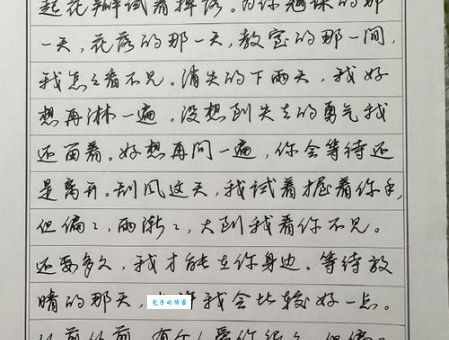 起花瓣试着掉落。为你翘课的那
一天,花落的那一天,教室的那一间,
我怎么看不见。消失的下雨天,我好
想再淋一遍。没想到失去的勇气我
还留着。好想再问一遍,你会等待还
是离开。刮风这天,我试着握着你手,
但偏偏,雨渐渐,大到我看你不见。
还要多久,我才能在你身边。等待放
晴的那天,也许我会比较好一点。
从前从前,有个人爱你很久,但偏